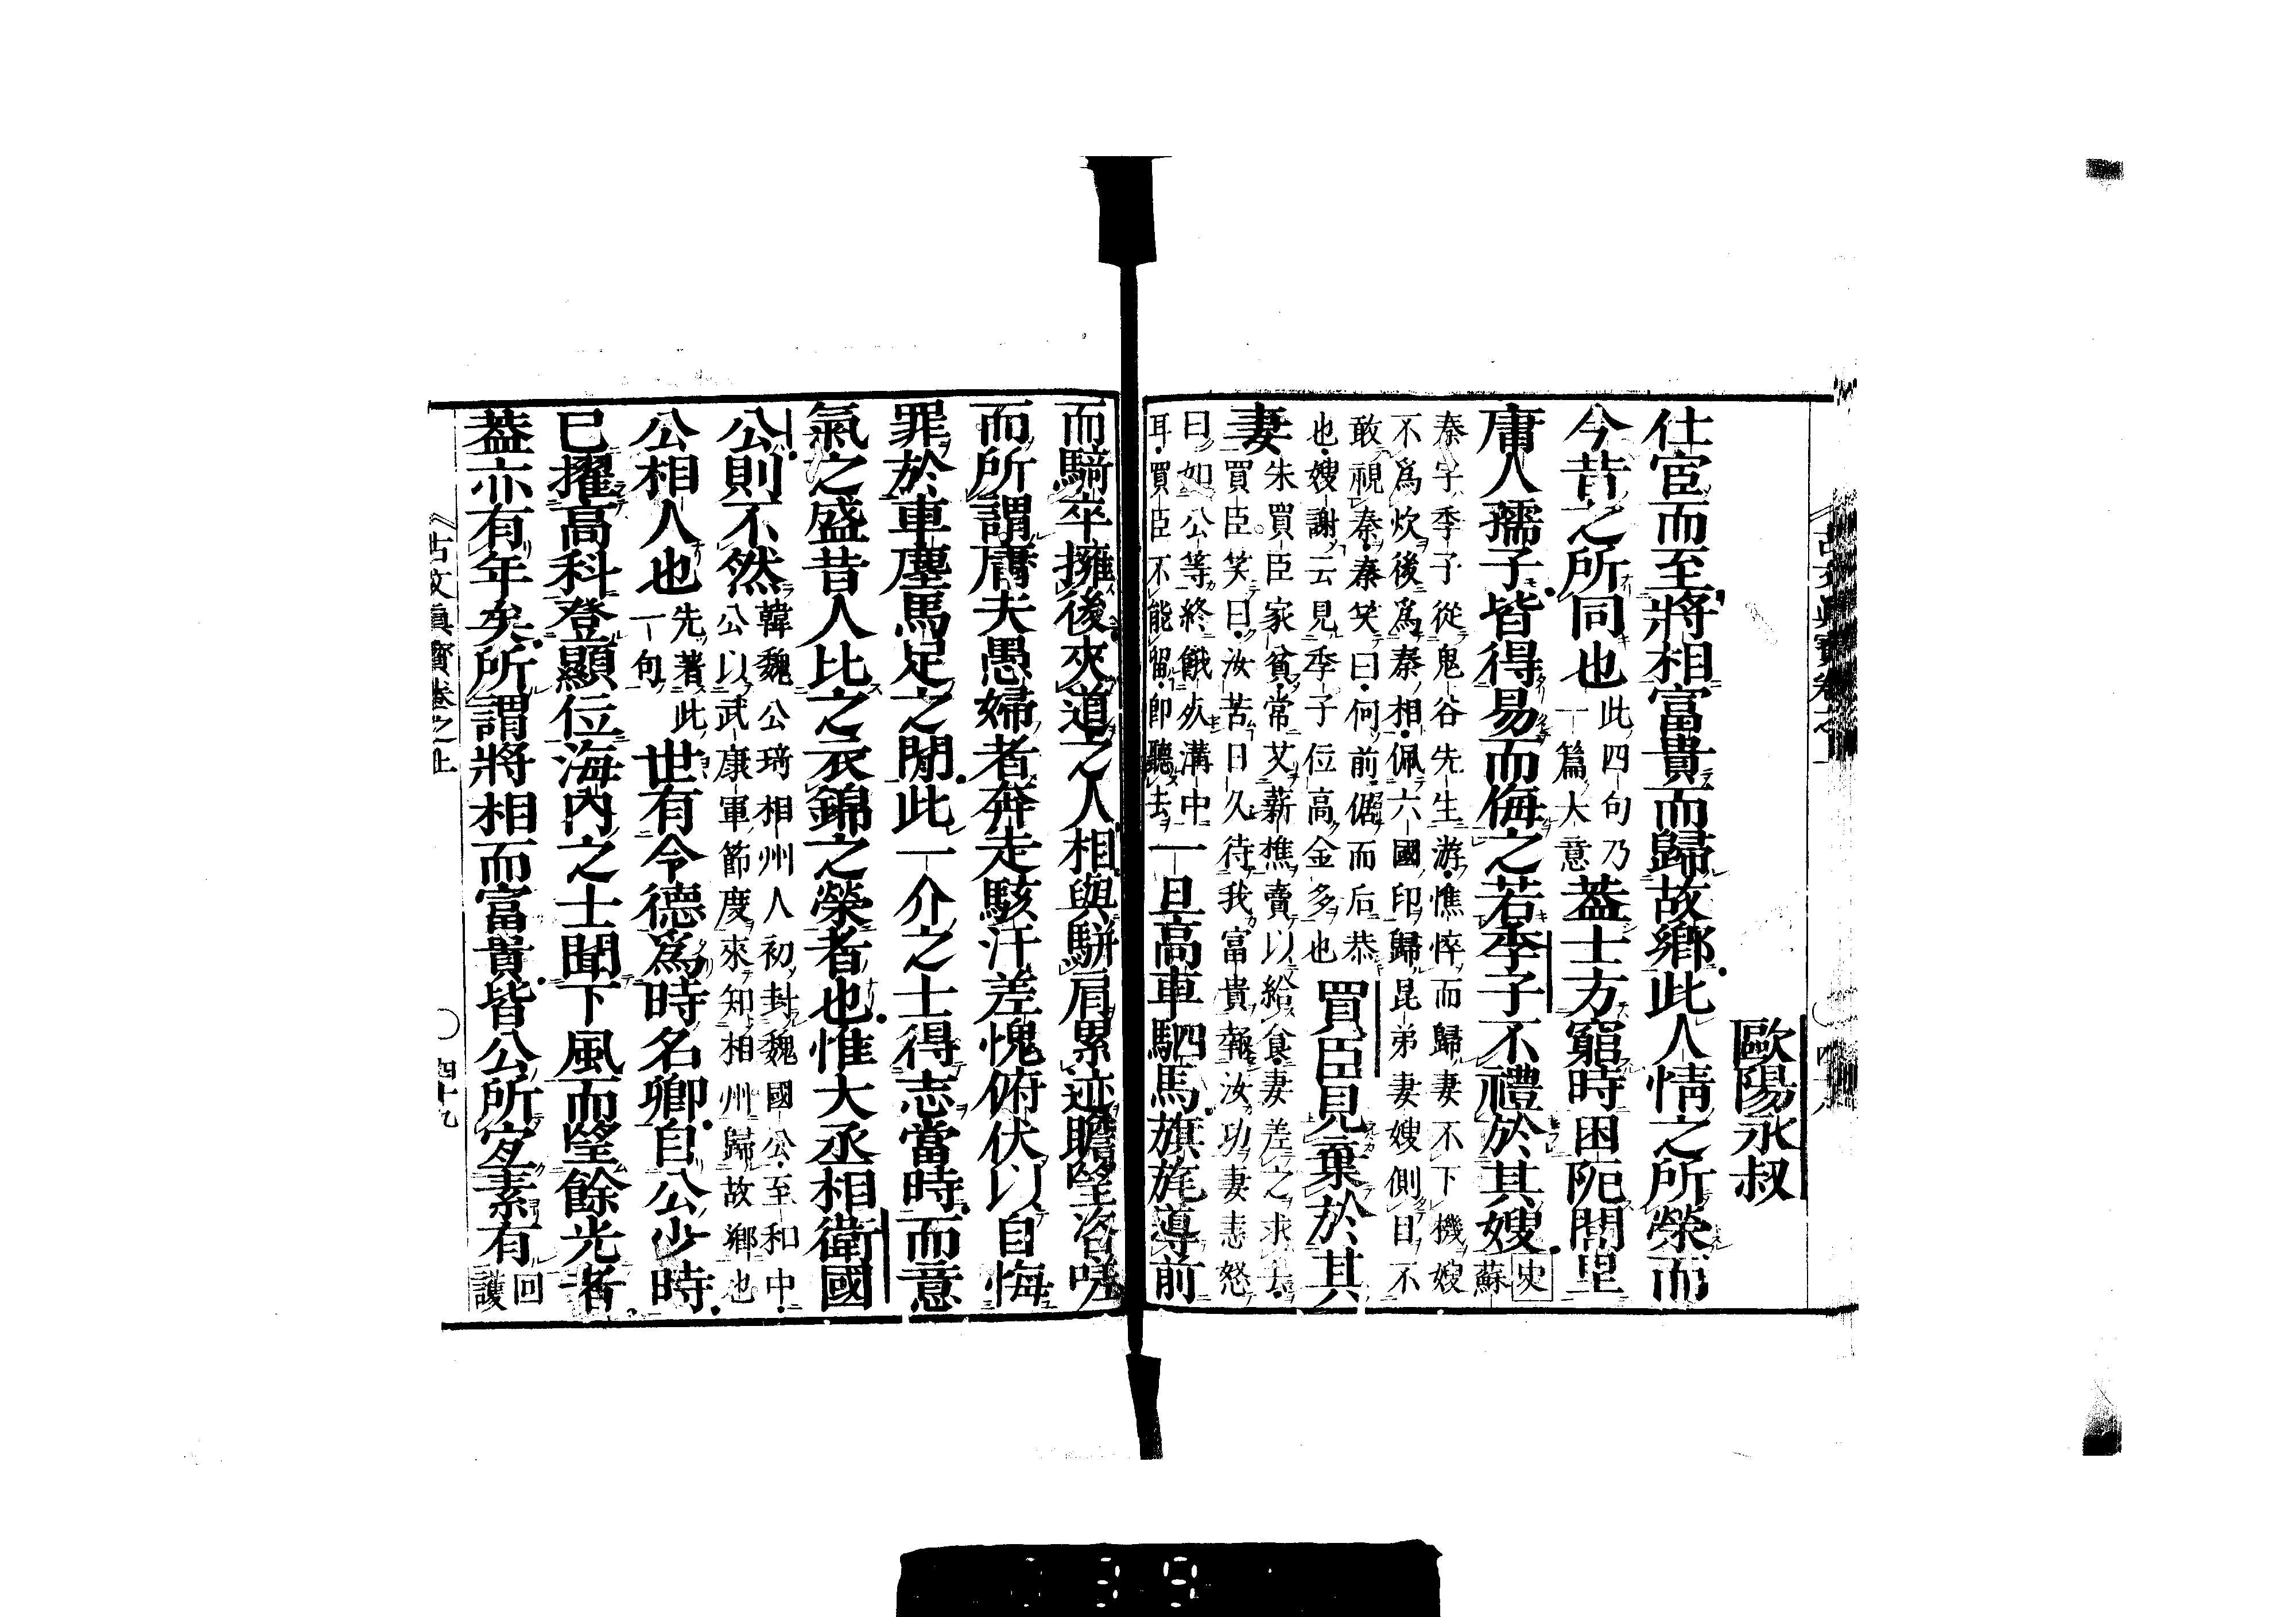 歐陽永叔
仕宦而至將相富貴而歸故鄉此人情之所榮而
今昔之所同也此四句乃一篇大意蓋士方窮時困阨閭里
庸人孺子皆得易而侮之若季子不禮於其嫂史蘇
秦字季子從鬼谷先生游憔悴而歸妻不下機嫂
不爲炊後爲秦相佩六國印歸昆弟妻嫂側目不
敢視秦秦笑曰何前倨而后恭
也嫂謝云見季子位高金多也買臣見棄於其
妻朱買臣家貧常艾薪樵賣以給食妻差之求去
買臣笑曰汝苦日久待我富貴報汝功妻恚怒
曰如公等終餓死溝中
耳買臣不能留卽聽去一旦高車駟馬旗旄導前
而騎卒擁後夾道之人相與駢肩累迹瞻望咨嗟
而所謂庸夫愚婦者奔走駭汗羞愧俯伏以自悔
罪於車塵馬足之閒此一介之士得志當時而意
氣之盛昔人比之衣錦之榮者也惟大丞相衛國
公則不然韓魏公琦相州人初封魏國公至和中公以武康軍節度來知相州歸故鄉也
公相人也先著此一句世有令德爲時名卿自公少時
已擢高科登顯位海內之士聞下風而望餘光者
蓋亦有年矣所謂將相而富貴皆公所宜素有回護
古文眞寶卷之上 四十九